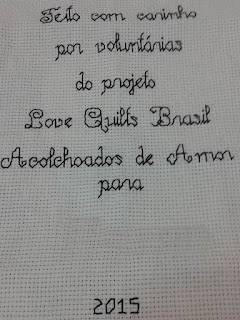 Feito com carinho
por voluntárias
do projeto
Love Quilts Brasil
Acolchoados de Amor
para
2015